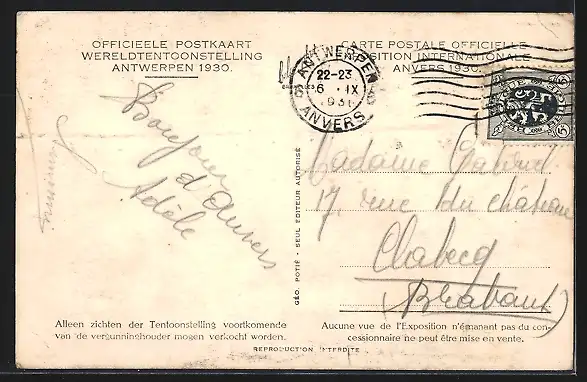 OFFICIEELE POSTKAART
WERELDTENTOONSTELLING
ANTWERPEN 1930.
CARTE POSTALE OFFICIELLE
EXPOSITION INTERNATIONALE
ANVERS 1930.
ANTWERPEN
22-23
6 IX
1931
ANVERS
Bonjour
d'Anvers
Adèle
Madame
17, rue du château
Clabecq
(Brabant)
GÉO. POTIÉ - SEUL EDITEUR AUTORISÉ
Alleen zichten der Tentoonstelling voortkomende
van de vergunninghouder mogen verkocht worden.
Aucune vue de l'Exposition n'émanant pas du con-
cessionnaire ne peut être mise en vente.
REPRODUCTION INTERDITE